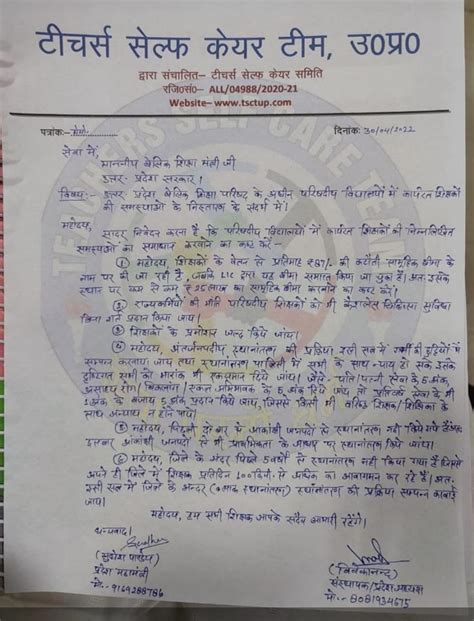 टीचर्स सेल्फ केयर टीम, उ0प्र0
द्वारा संचालित– टीचर्स सेल्फ केयर समिति
रजि0सं0– ALL/04988/2020-21
Website– www.tsctup.com
पत्रांक:– मेमो
दिनांक: 30/04/2022
सेवा में,
माननीय बेसिक शिक्षा मंत्री जी
उत्तर प्रदेश सरकार।
विषय:- उत्तर प्रदेश बेसिक शिक्षा परिषद के अधीन परिषदीय विद्यालयों में कार्यरत शिक्षकों
की समस्याओं के निस्तारण के संदर्भ में।
महोदय,
सादर निवेदन करना है कि परिषदीय विद्यालयों में कार्यरत शिक्षकों की निम्नलिखित
समस्याओं का समाधान करवाने का कष्ट करें-
① महोदय शिक्षकों के वेतन से प्रतिमाह ₹87/- की कटौती सामूहिक बीमा के
नाम पर की जा रही है, जबकि LIC द्वारा यह बीमा समाप्त किया जा चुका है। अतः इसके
स्थान पर कम से कम ₹25 लाख का सामूहिक बीमा करवाने का कष्ट करें।
② राज्यकर्मियों की भाँति परिषदीय शिक्षकों को भी कैशलेस चिकित्सा सुविधा
बिना शर्त प्रदान किया जाय।
③ शिक्षकों के प्रमोशन जल्द किये जांय।
④ महोदय अंतर्जनपदीय स्थानांतरण की प्रक्रिया इसी सत्र में गर्मी की छुट्टियों में
सम्पन्न करवाया जाय तथा स्थानांतरण पालिसी में सभी के साथ न्याय हो सके इसके
दृष्टिगत सभी को भारांक भी एकसमान दिये जांय। जैसे- पति/पत्नी सेवा के 5 अंक
असाध्य रोग/ विकलांग/ एकल अभिभावक के 5 अंक दिये जांय तो प्रतिवर्ष सेवा के भी
1 अंक के बजाय 5 अंक प्रदान किये जांय, जिससे किसी भी वरिष्ठ शिक्षक/शिक्षिका के
साथ अन्याय न होने पाये।
⑤ महोदय, पिछली से आकांक्षी जनपदों से स्थानांतरण नहीं किये गये हैं अतः
आकांक्षी जनपदों से भी प्राथमिकता के आधार पर स्थानांतरण किये जांय।
⑥ महोदय, जिले के अन्दर पिछले वर्षों से स्थानांतरण नहीं किया गया है जिससे
अपने ही जिले में शिक्षक प्रतिदिन 100 किमी. से अधिक का आवागमन कर रहे हैं। अतः
इसी सत्र में जिले के अन्दर स्थानांतरण की प्रक्रिया सम्पन्न करवाई
जाय।
महोदय, हम सभी शिक्षक आपके सदैव आभारी रहेंगे।
धन्यवाद।
(सुधेश पाण्डेय)
प्रदेश महामंत्री
मो.- 9169288786
(विवेकानन्द)
संस्थापक/प्रदेश अध्यक्ष
मो.- 8081934675
TEACHERS SELF CARE TEAM